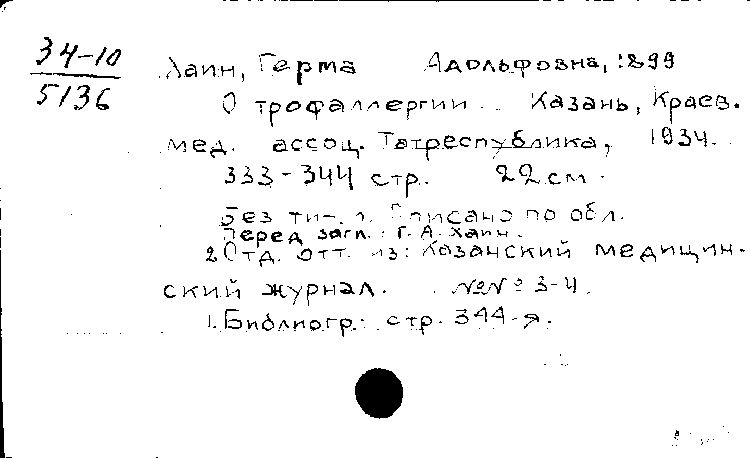 34-10
5136
Хаин, Герта Адольфовна, 1899
О трофаллергии.. Казань, Краев.
мед. ассоц. Татреспублика, 1934.
333-344 стр. 22 см.
Без тит. л. Описано по обл.
Перед загл.: Г. А. Хаин.
2 Отд. отт. из: Казанский медицин-
ский журнал. №№ 3-4.
1. Библиогр.: стр. 344-я.